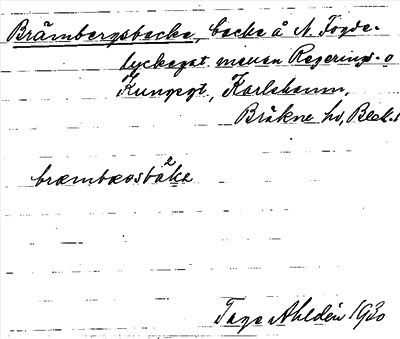 Brämbergsbacke, backe å N. Fogde-
lyckegat. mellan Regerings- o
Kungsgt, Karlshamn,
Bräkne hd, Blek.
bræmbæsbàkə
Tage Ahldén 1930